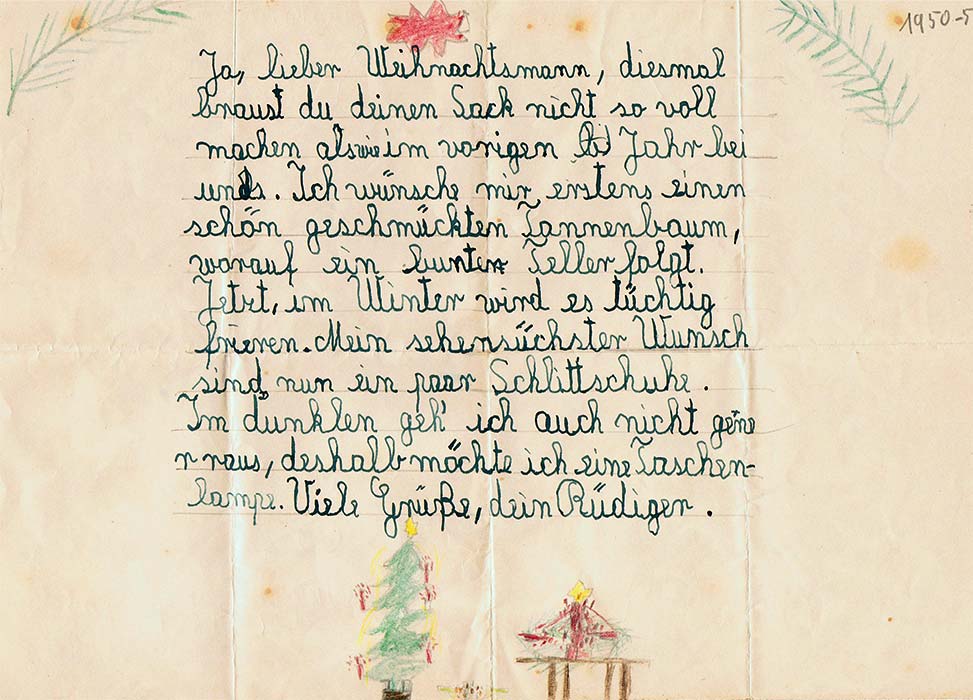 1950-5
Ja, lieber Weihnachtsmann, diesmal
braust du deinen Sack nicht so voll
machen als wie im vorigen Jahr bei
uns. Ich wünsche mir erstens einen
schön geschmückten Tannenbaum,
worauf ein bunter Teller folgt.
Jetzt, im Winter wird es tüchtig
frieren. Mein sehensüchster Wunsch
sind nun ein paar Schlittschuhe.
Im dunklen geh' ich auch nicht gerne
r raus, deshalb möchte ich eine Taschen-
lampe. Viele Grüße, dein Rüdiger.